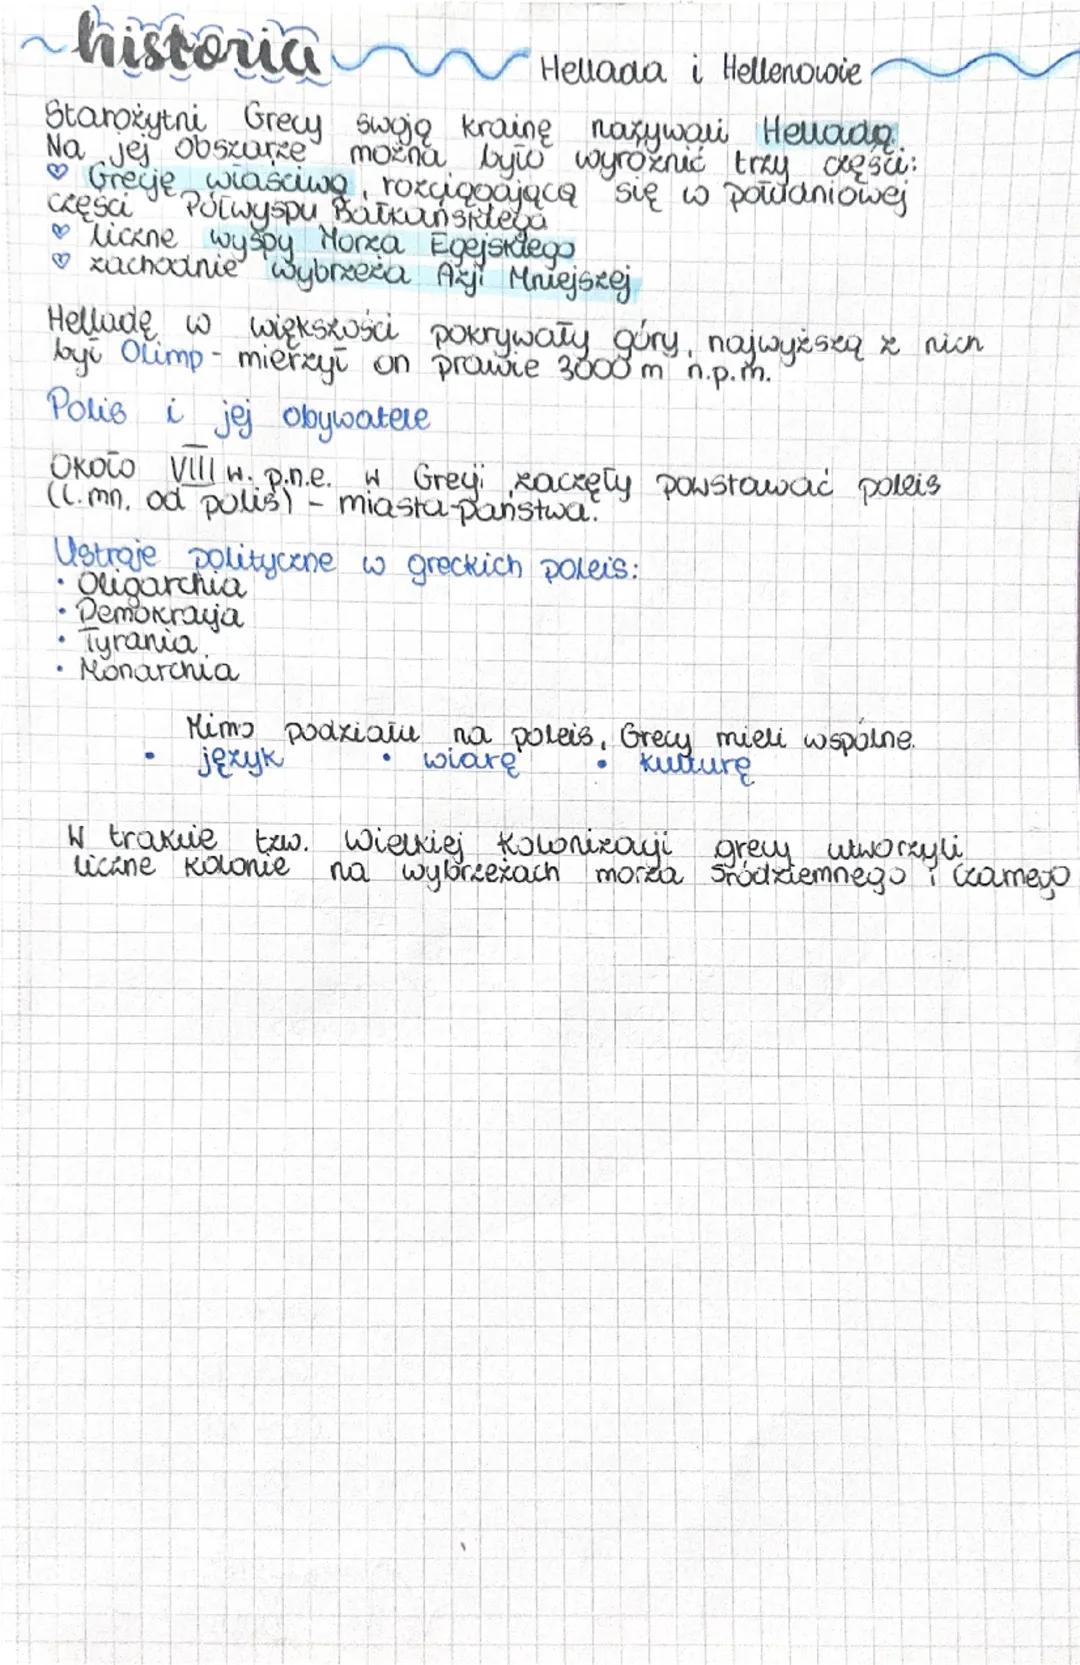 historia
Hellada i Hellenowie
Starożytni Grecy swoją krainę nazywali Helladą.
Na jej obszarze można było wyróżnić trzy części:
Grecję właściwą, rozciągającą się w południowej
części Półwyspu Bałkańskiego
liczne wyspy Morza Egejskiego
zachodnie wybrzeża Azji Mniejszej
Helladę w większości pokrywały góry, najwyższą z nich
był Olimp - mierzył on prawie 3000 m n.p.m.
Polis i jej obywatele
Około VIII w. p.n.e. w Grecji zaczęły powstawać poleis
(l.mn. od polis) - miasta-państwa.
Ustroje polityczne w greckich poleis:
• Oligarchia
• Demokracja
• Tyrania
• Monarchia
Mimo podziału na poleis, Grecy mieli wspólne.
• język • wiarę • kulturę
W trakcie tzw. Wielkiej Kolonizacji grecy utworzyli
liczne kolonie na wybrzeżach morza Śródziemnego i Czarnego